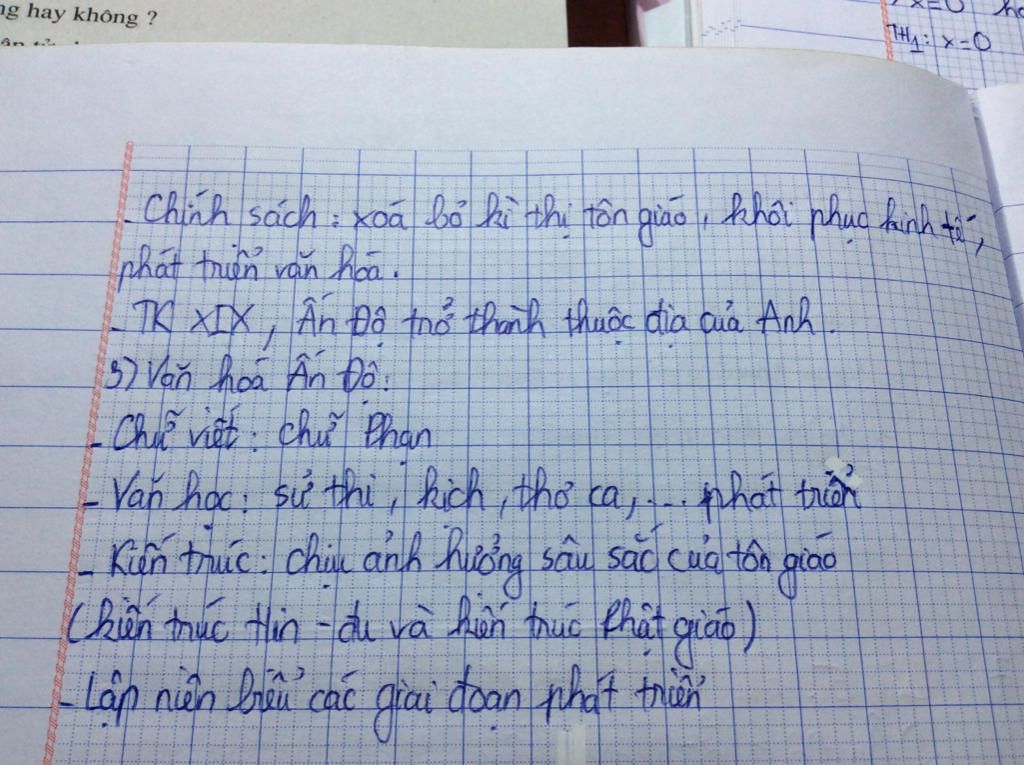 ng hay không ?
x=0
TH1: x=0
- Chính sách : xoá bỏ kì thị tôn giáo, khôi phục kinh tế,
phát triển văn hoá.
- TK XIX, Ấn Độ trở thành thuộc địa của Anh.
3) Văn hoá Ấn Độ:
- Chữ viết: chữ Phạn
- Văn học: sử thi, kịch, thơ ca, ... phát triển
- Kiến trúc: chịu ảnh hưởng sâu sắc của tôn giáo
(kiến trúc Hin - đu và kiến trúc Phật giáo)
- Lập niên biểu các giai đoạn phát triển